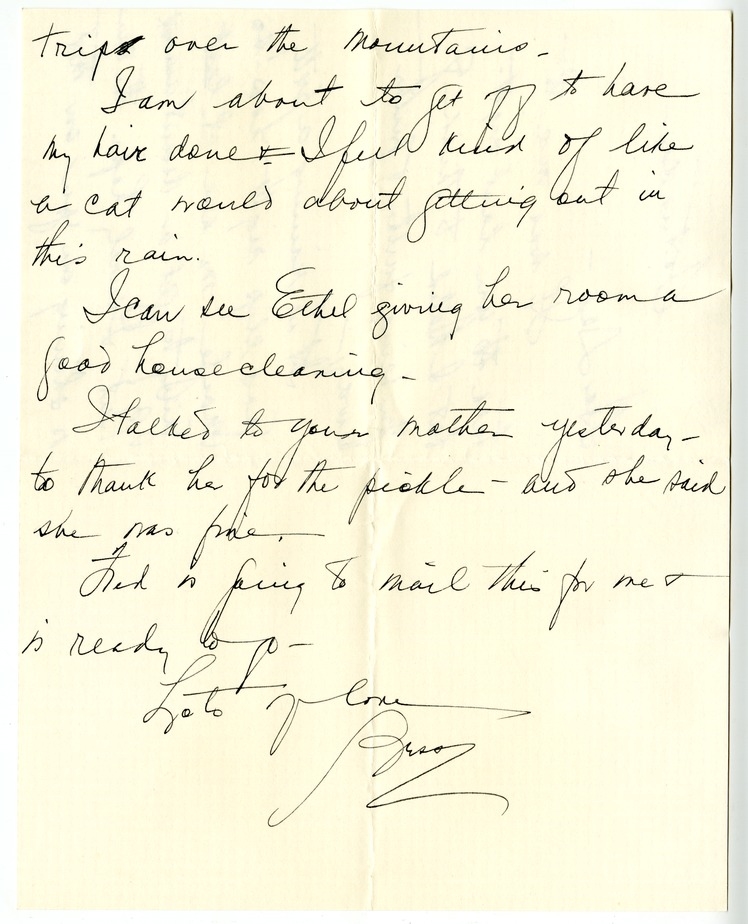 trips over the mountains -
I am about to get off to have
my hair done & I feel kind of like
a cat would about getting out in
this rain.
I can see Ethel giving her room a
good housecleaning -
I talked to your mother yesterday -
to thank her for the pickle - and she said
she was fine.
Fred is going to mail this for me &
is ready to go -
Lots of love
Bess